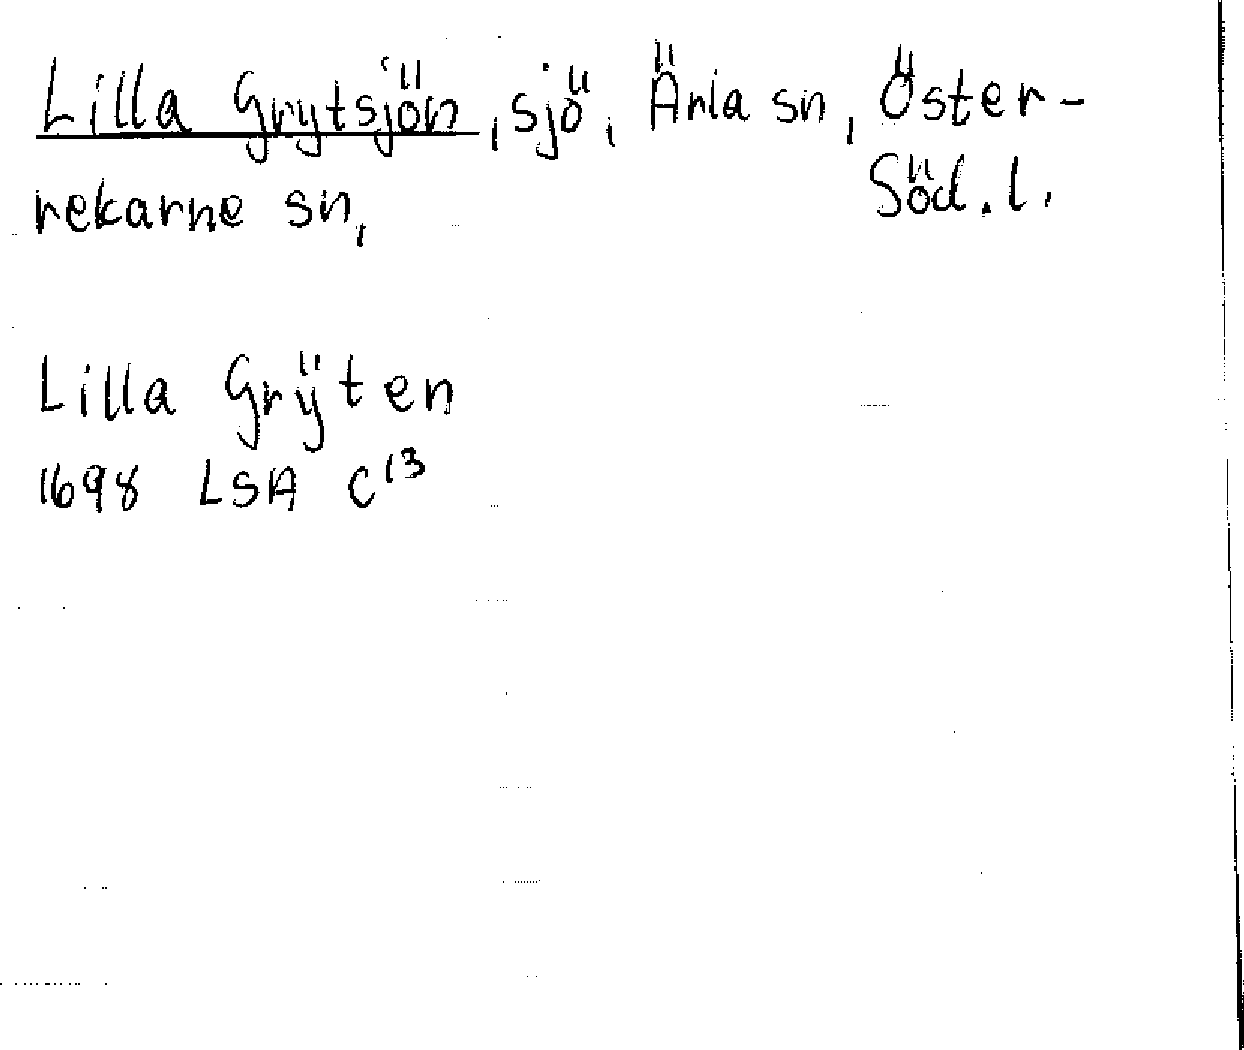 Lilla Grytsjön, sjö, Ärla sn, Öster-
rekarne sn, Söd.l.
Lilla Grÿten
1698 LSA C13